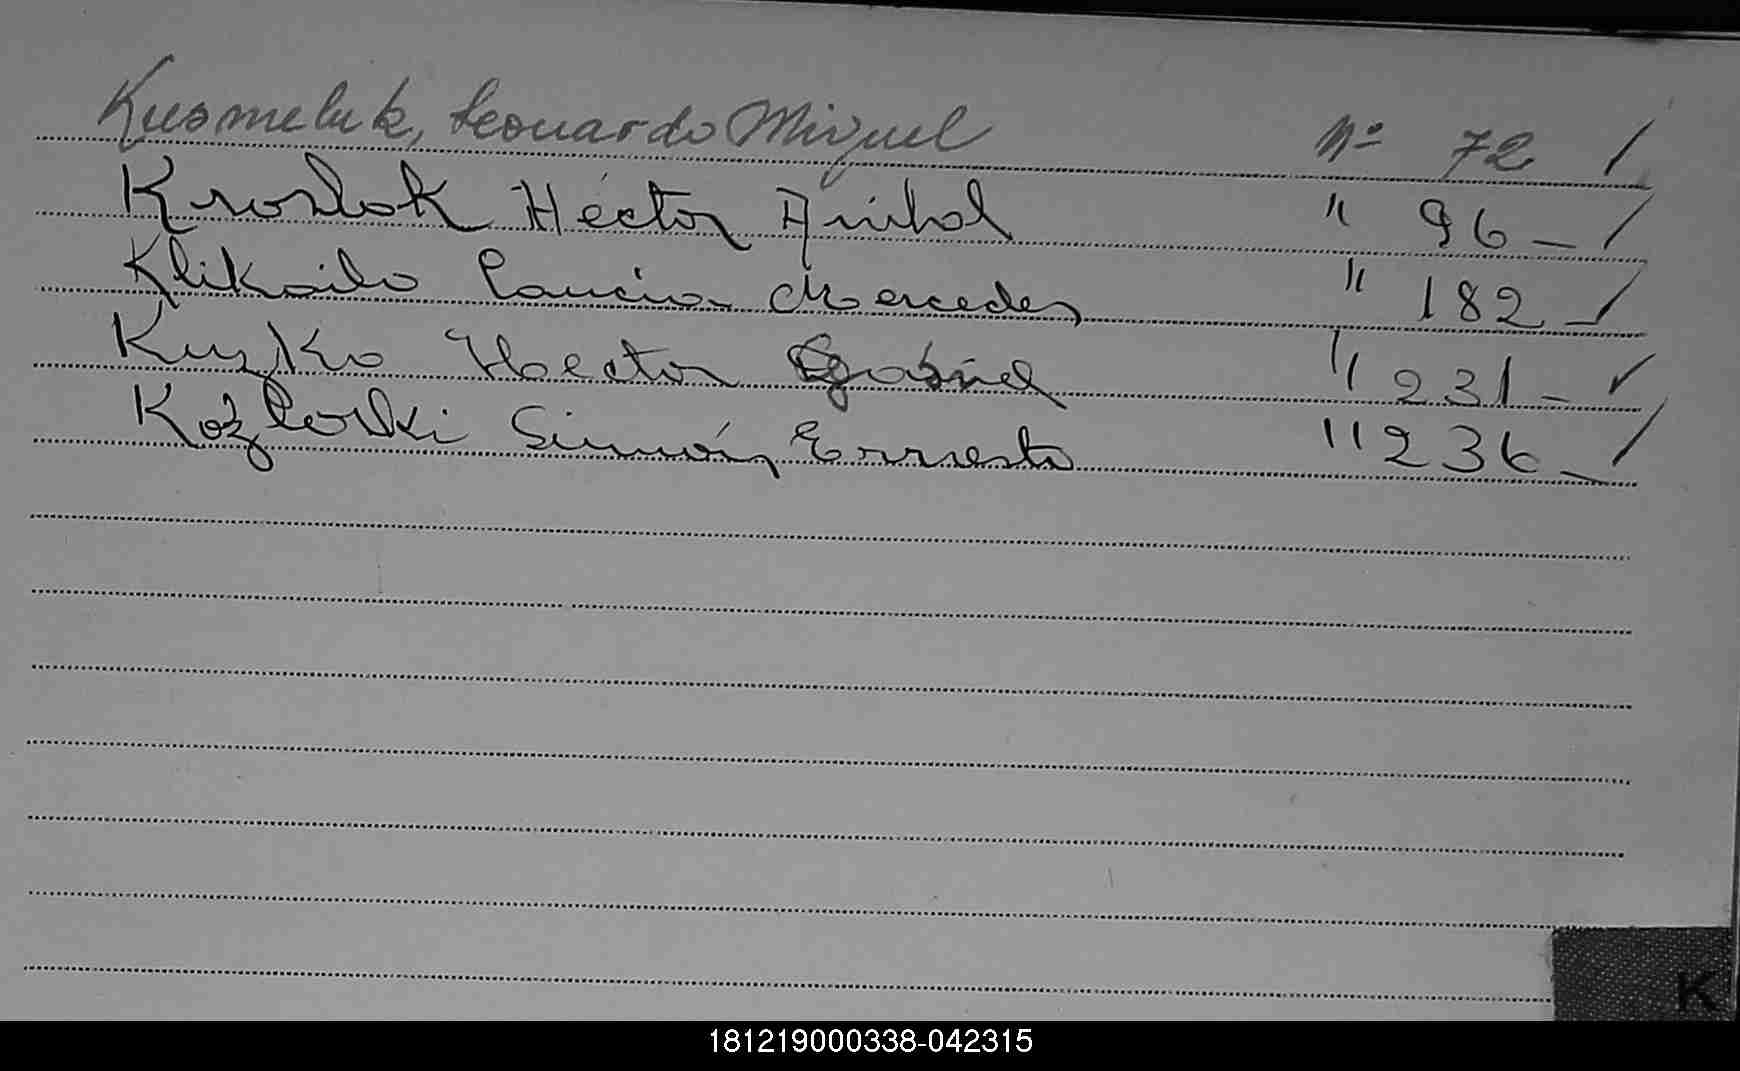 Kusmeluk, Leonardo Miguel Nº 72 /
Kroslak Héctor Anibal " 96 — /
Klikailo Mercedes " 182 — /
Kuzko Hector Gabriel " 231 — ✓
Kozlorki Simón Ernesto " 236 — /
K
181219000338-042315